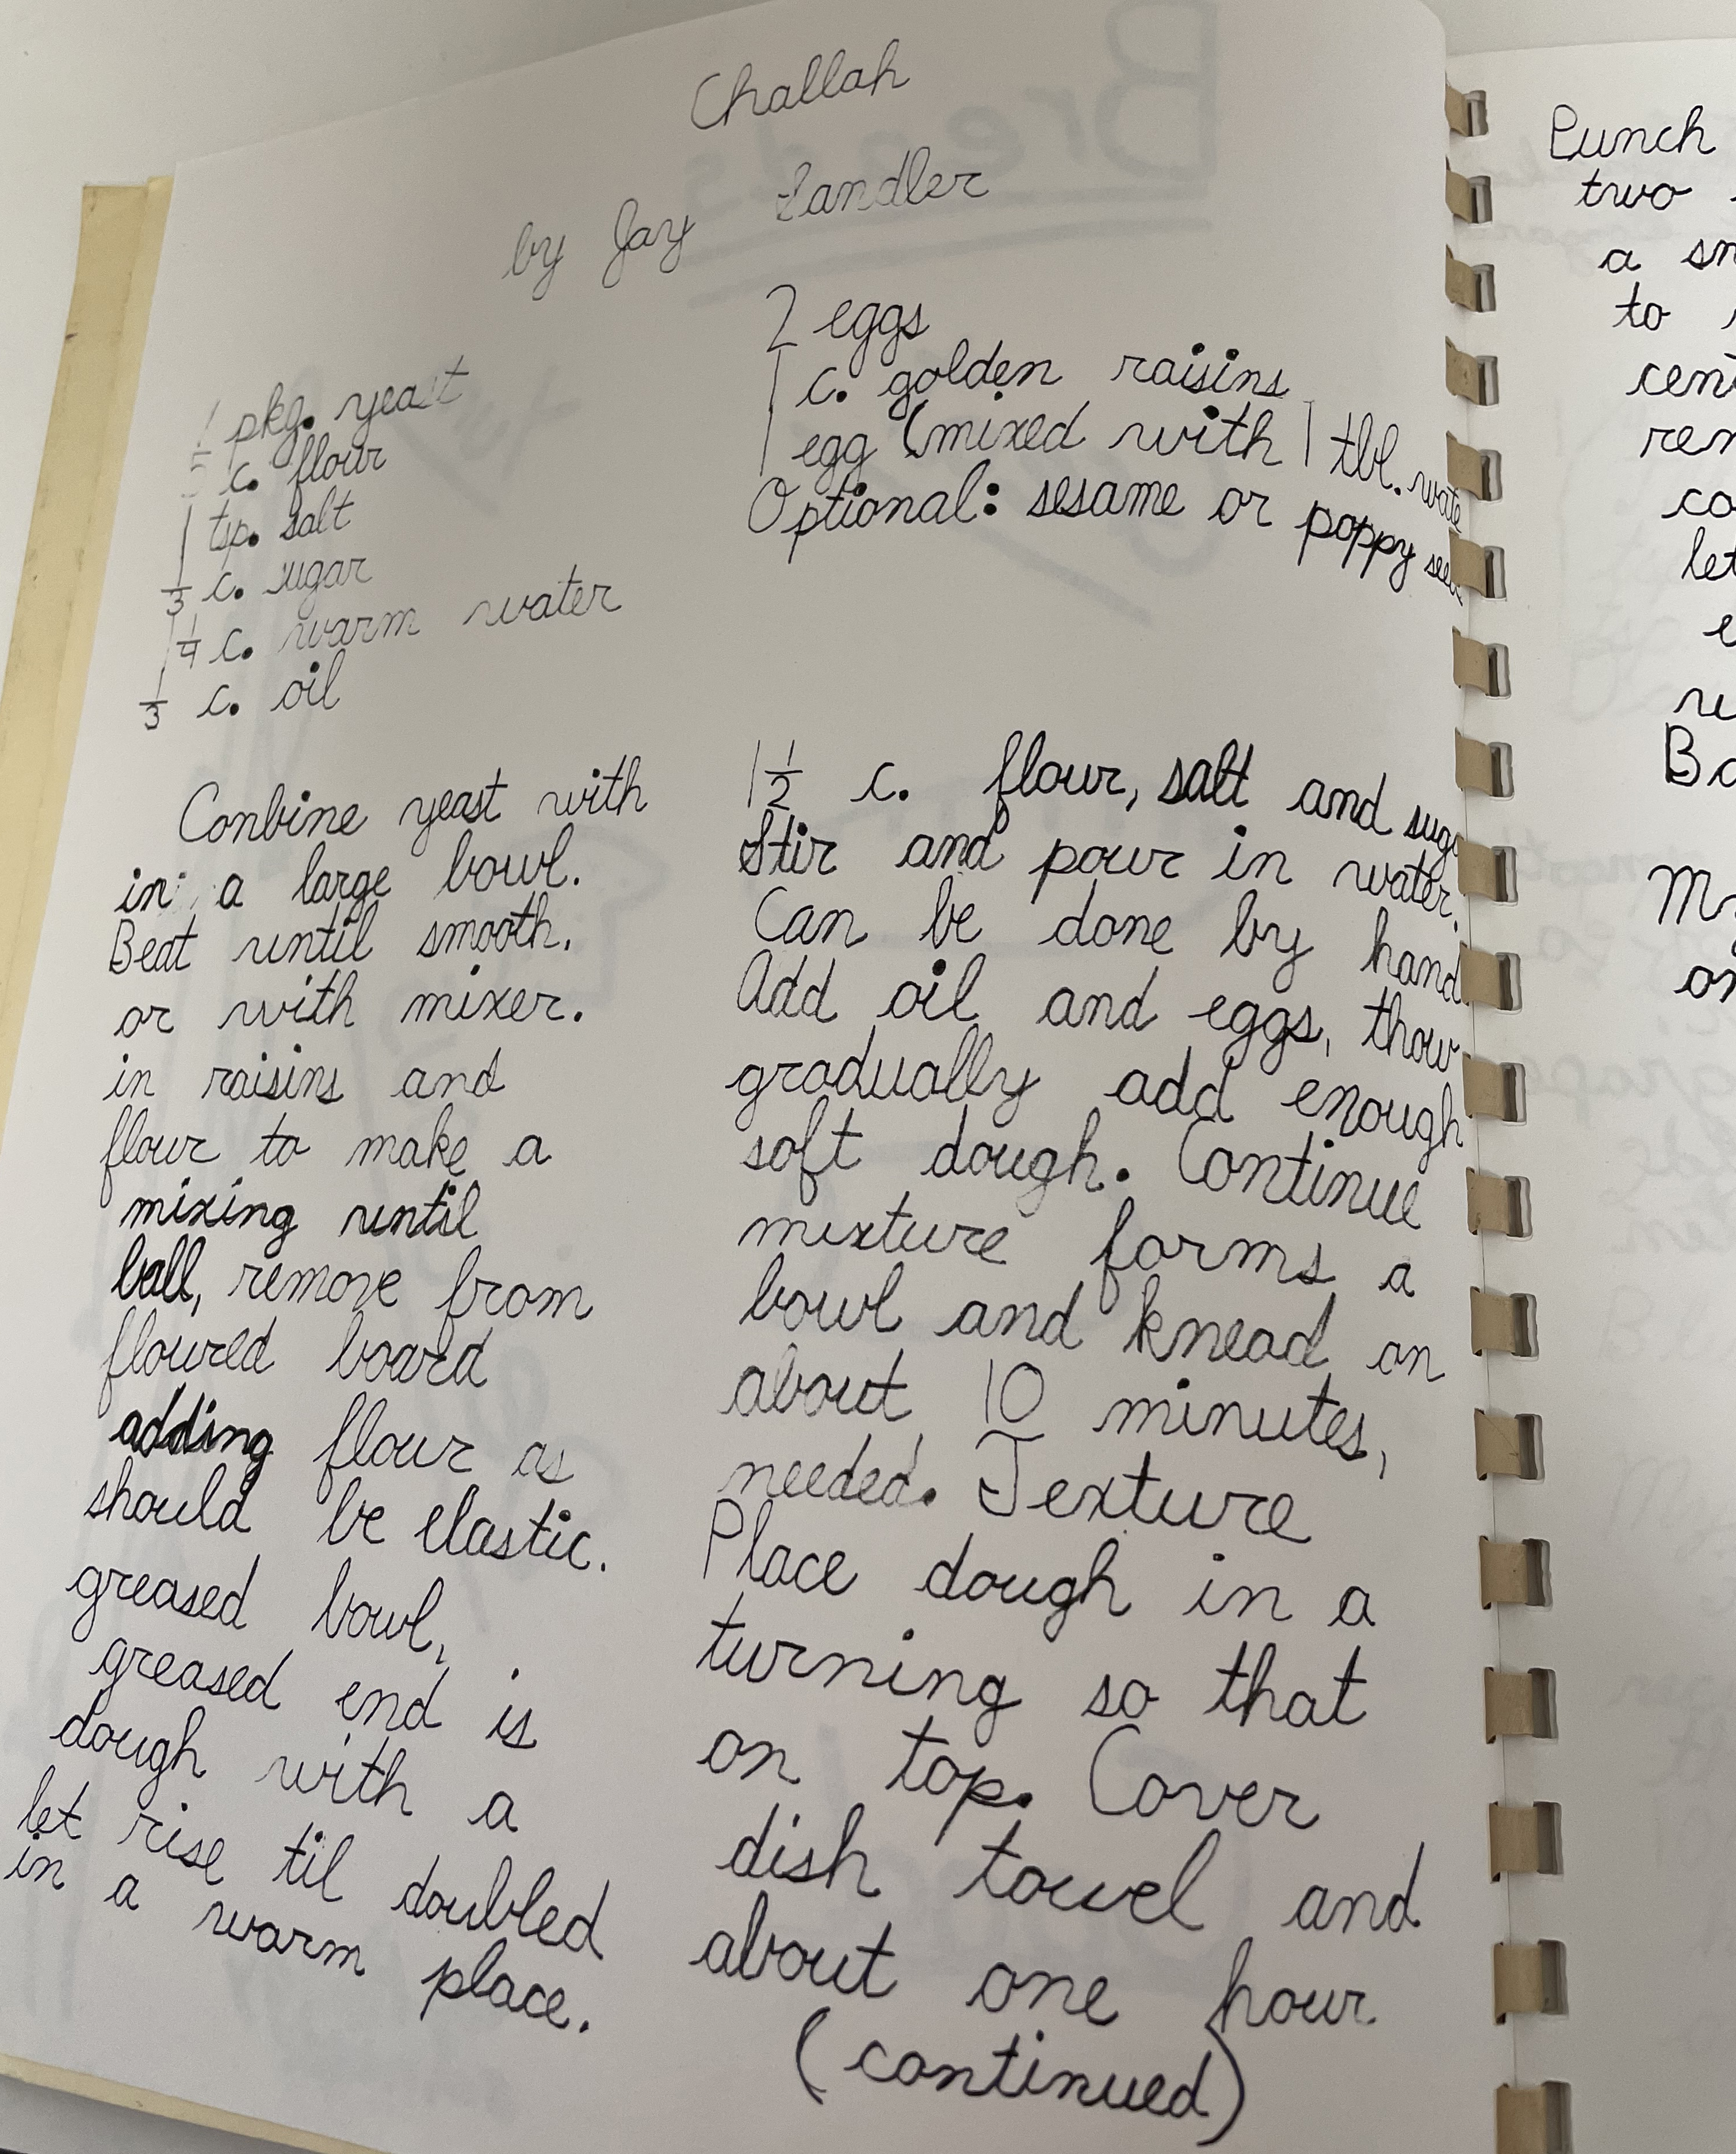 Challah
by Jay Sandler
1 pkg. yeast
5 c. flour
1 tsp. salt
1/3 c. sugar
1 1/4 c. warm water
1/3 c. oil
2 eggs
1 c. golden raisins
1 egg (mixed with 1 tbl.
Optional: sesame or poppy
Conbine yeast with 1 1/2 c. flour, salt and
in a large bowl. Stir and pour in water.
Beat until smooth. Can be done by hand
or with mixer. Add oil and eggs, thow
in raisins and gradually add enough
flour to make a soft dough. Continue
mixing until mixture forms a
ball, remove from bowl and knead on
floured board about 10 minutes,
adding flour as needed. Texture
should be elastic. Place dough in a
greased bowl, turning so that
greased end is on top. Cover
dough with a dish towel and
let rise til doubled about one hour
in a warm place. (continued)
Punch
two
a
to
let